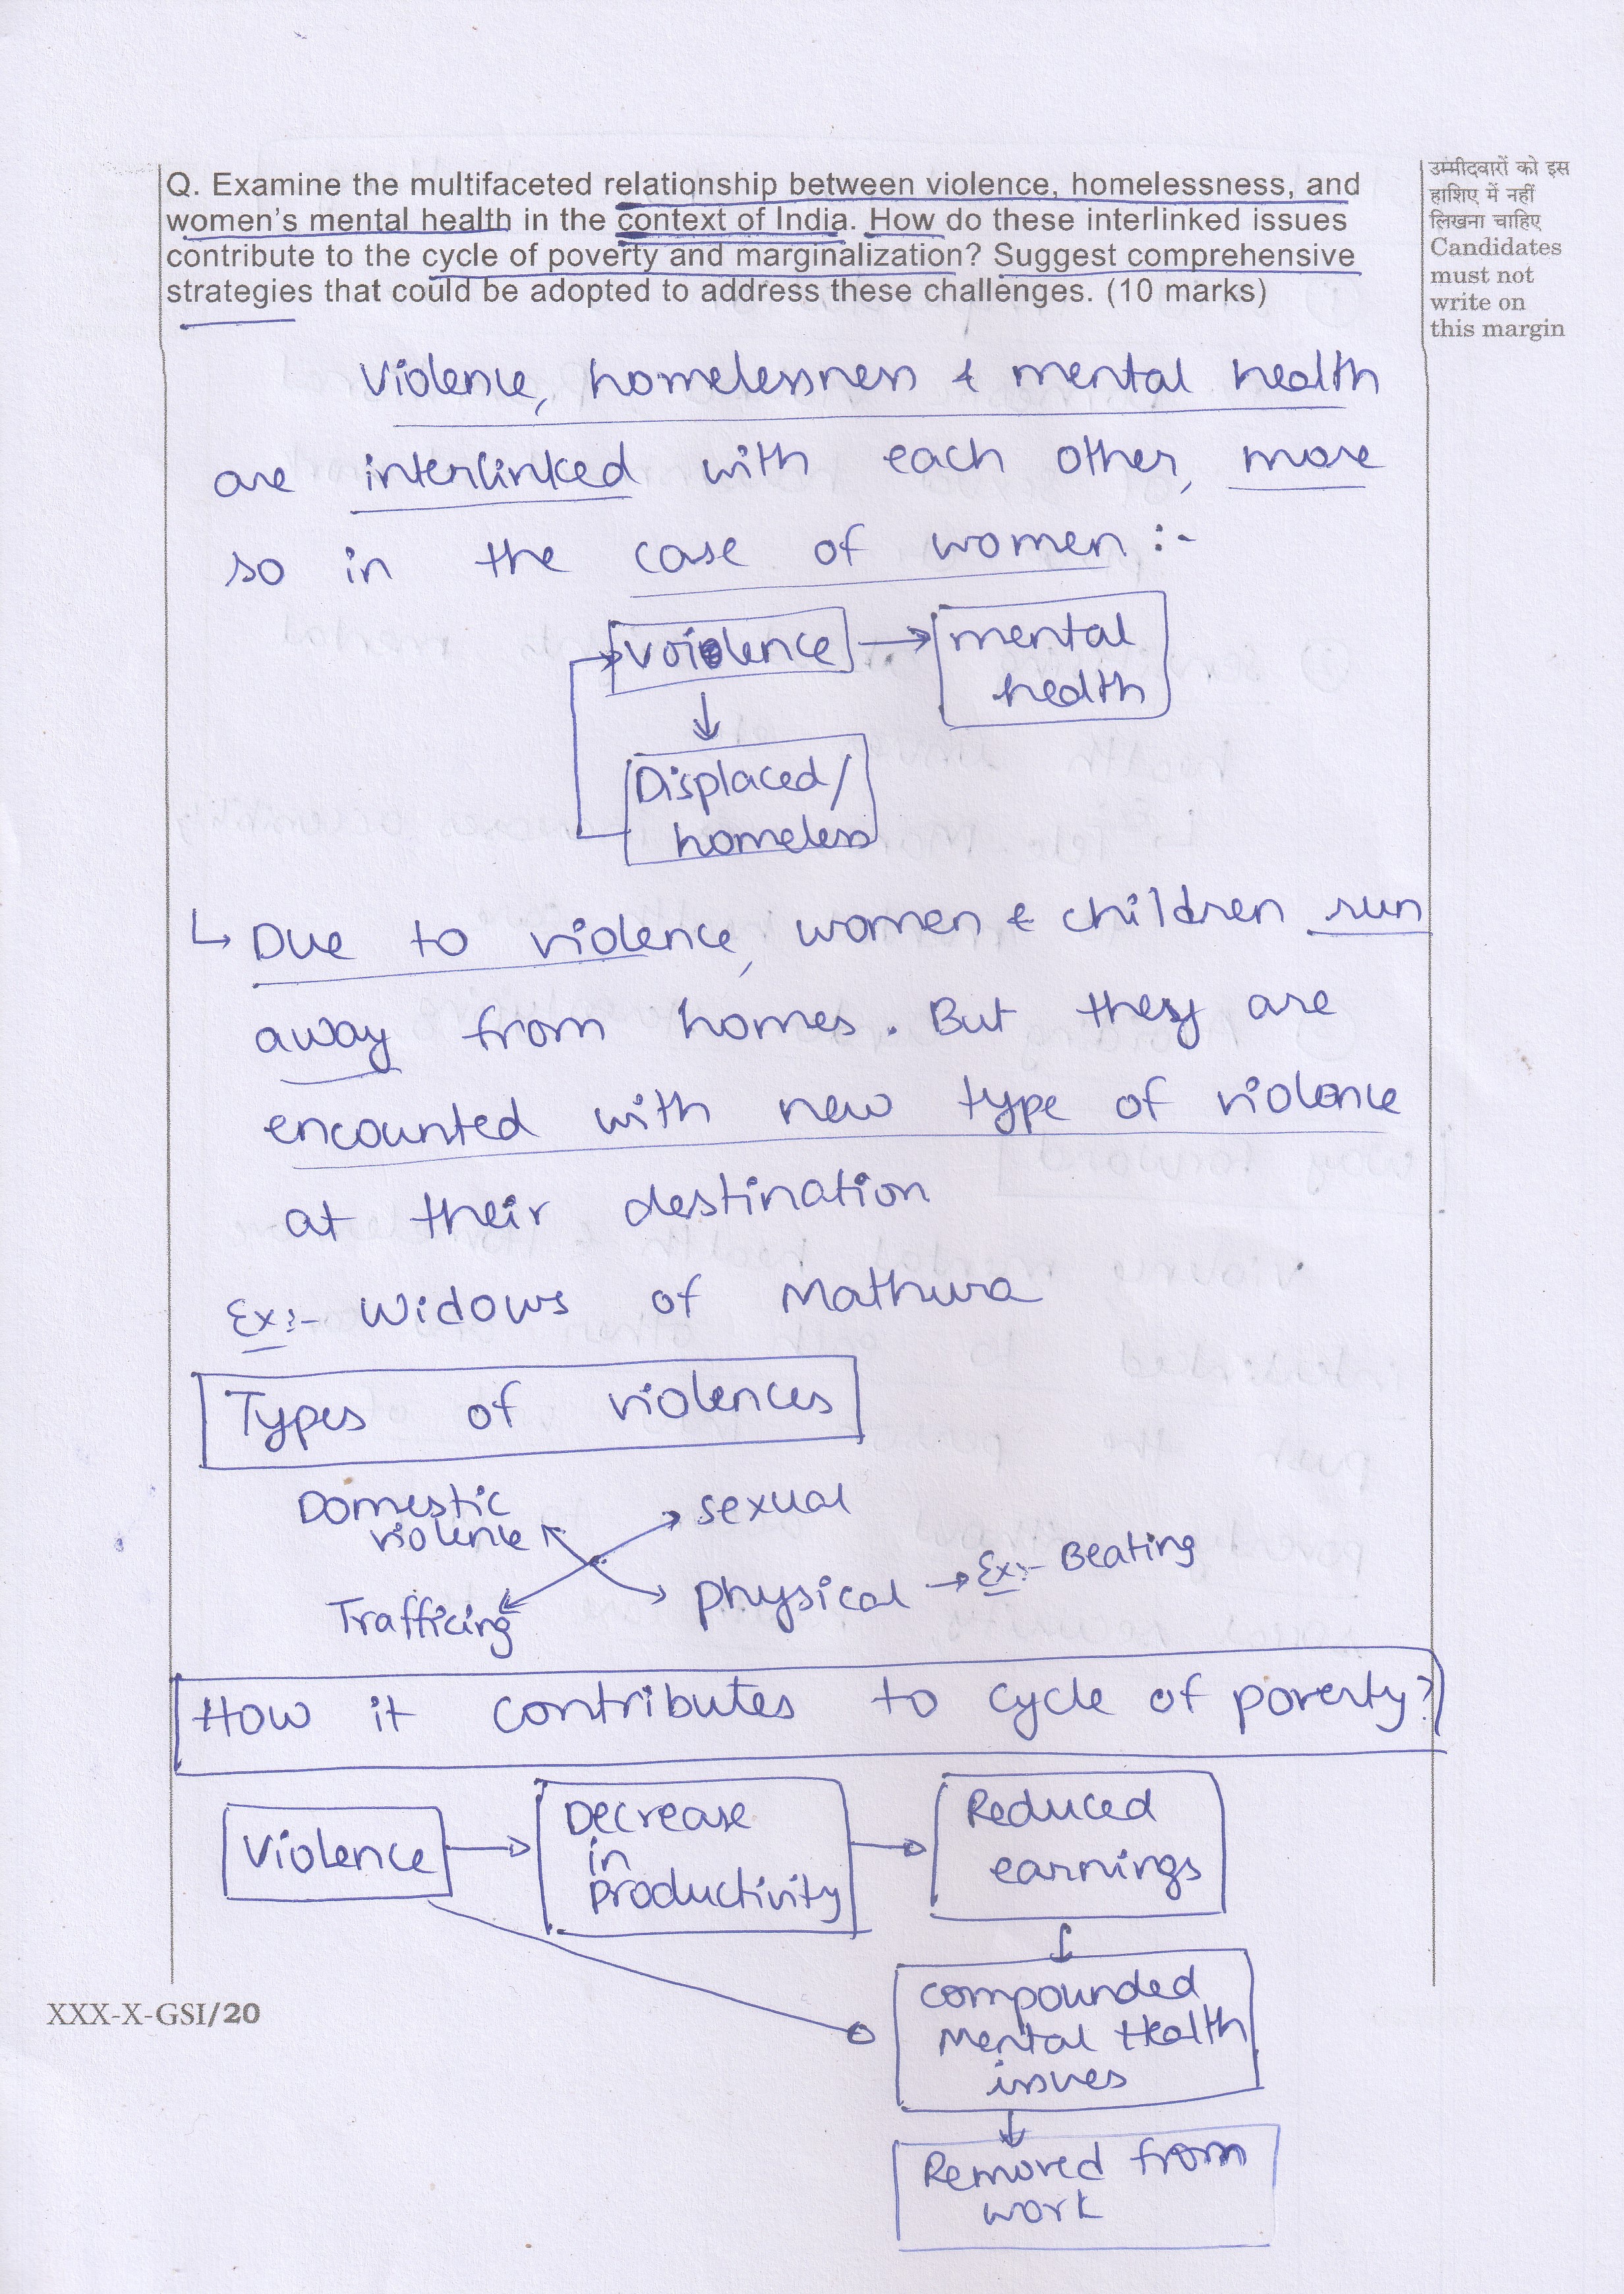 Q. Examine the multifaceted relationship between violence, homelessness, and
women's mental health in the context of India. How do these interlinked issues
contribute to the cycle of poverty and marginalization? Suggest comprehensive
strategies that could be adopted to address these challenges. (10 marks)
उम्मीदवारों को इस
हाशिए में नहीं
लिखना चाहिए
Candidates
must not
write on
this margin
Violence, homelessness & mental health
are interlinked with each other, more
so in the case of women :-
Voilence → mental
health
Displaced/
homeless
↳ Due to violence, women & children run
away from homes. But they are
encounted with new type of violence
at their destination
Ex:- Widows of Mathura
Types of violences
Domestic
violence
sexual
Trafficing
Physical → Ex:- Beating
How it contributes to cycle of poverty?
Violence → Decrease
in
productivity → Reduced
earnings
compounded
Mental Health
issues
Removed from
work
XXX-X-GSI/20